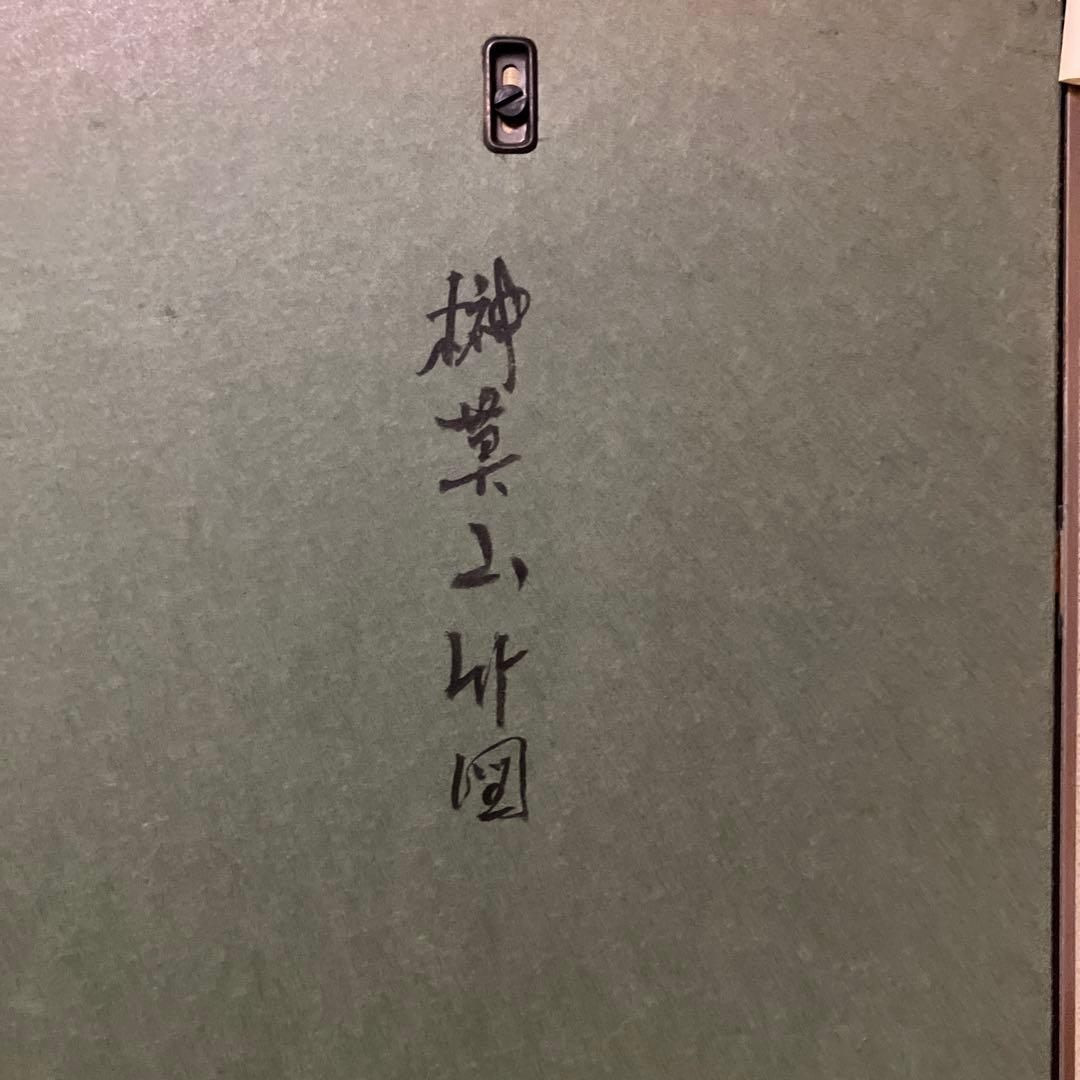 榊莫山竹図